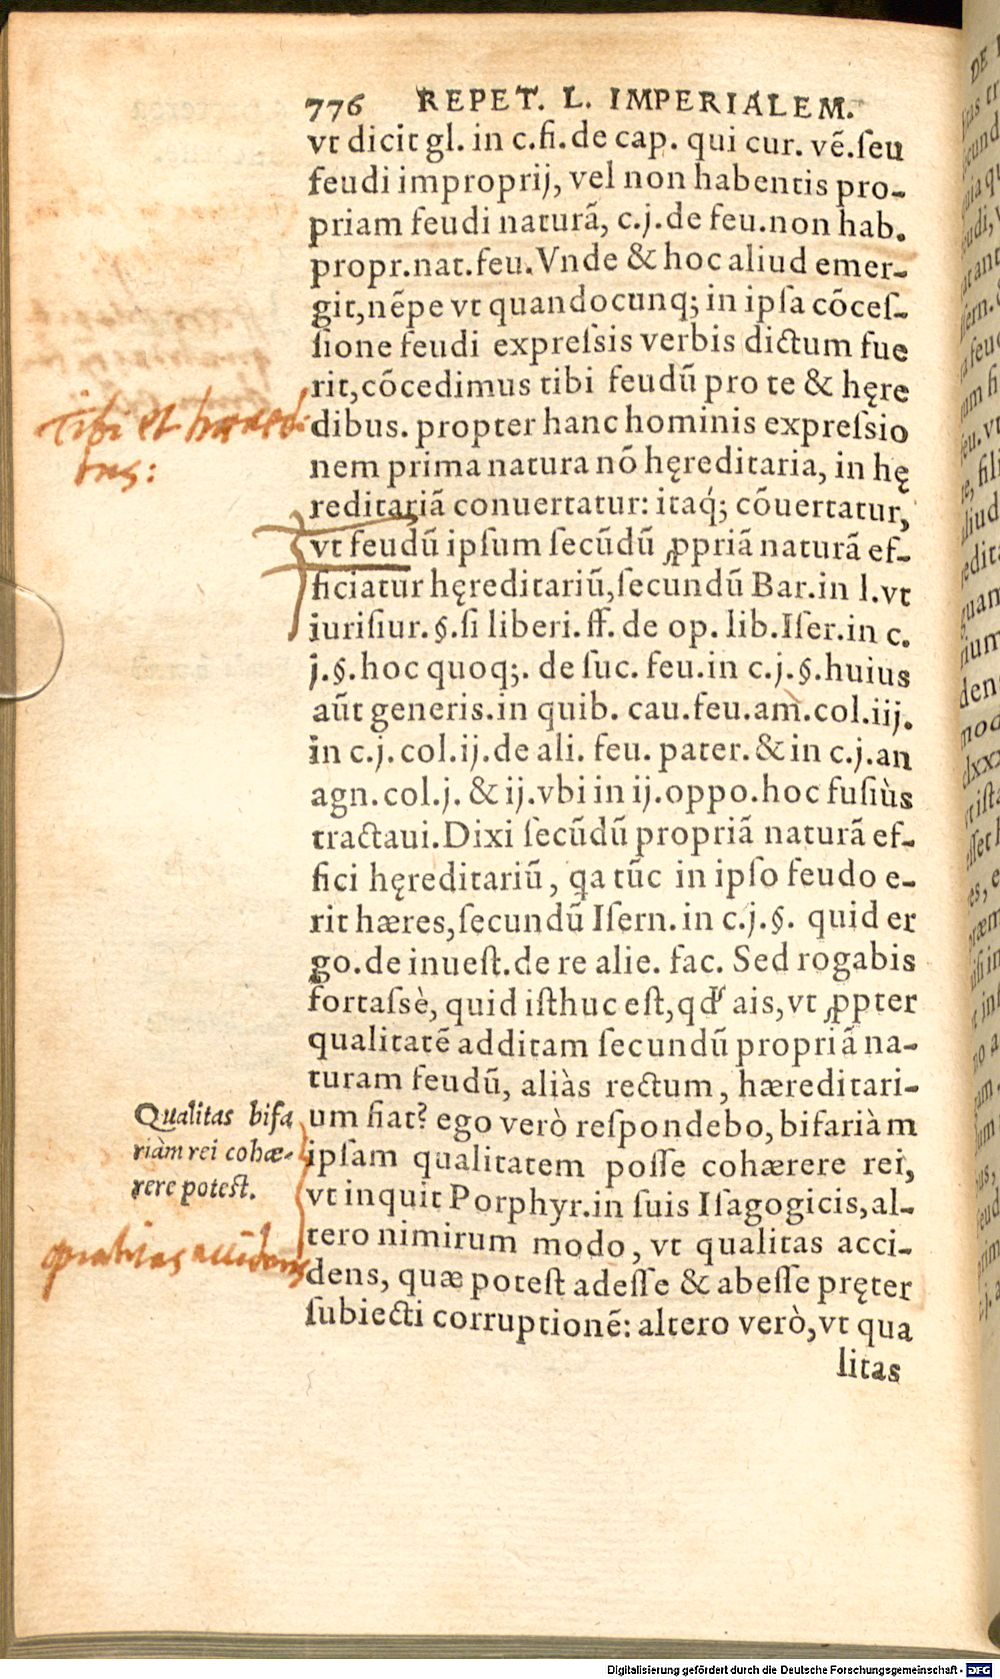 776 REPET. L. IMPERIALEM.
vt dicit gl. in c. fi. de cap. qui cur. vẽ. ſeu
feudi improprij, vel non habentis pro-
priam feudi naturã, c. j. de feu. non hab.
propr. nat. feu. Vnde & hoc aliud emer-
git, nẽpe vt quandocunq; in ipſa cõceſ-
ſione feudi expreſsis verbis dictum fue
rit, cõcedimus tibi feudũ pro te & hęre
dibus. propter hanc hominis expreſsio
nem prima natura nõ hęreditaria, in hę
reditariã conuertatur: itaq́; cõuertatur,
vt feudũ ipſum ſecũdũ ꝓpriã naturã ef-
ficiatur hęreditariũ, ſecundũ Bar. in l. vt
iuriſiur. §. ſi liberi. ff. de op. lib. Iſer. in c.
j. §. hoc quoq;. de ſuc. feu. in c. j. §. huius
aũt generis. in quib. cau. feu. am. col. iij.
in c. j. col. ij. de ali. feu. pater. & in c. j. an
agn. col. j. & ij. vbi in ij. oppo. hoc fuſiùs
tractaui. Dixi ſecũdũ propriã naturã ef-
fici hęreditariũ, ꝗa tũc in ipſo feudo e-
rit hæres, ſecundũ Iſern. in c. j. §. quid er
go. de inueſt. de re alie. fac. Sed rogabis
fortaſsè, quid iſthuc eſt, qđ ais, vt ꝓpter
qualitatẽ additam ſecundũ propriã na-
turam feudũ, aliàs rectum, hæreditari-
um fiat? ego verò reſpondebo, bifariàm
ipſam qualitatem poſſe cohærere rei,
vt inquit Porphyr. in ſuis Iſagogicis, al-
tero nimirum modo, vt qualitas acci-
dens, quæ poteſt adeſſe & abeſſe pręter
ſubiecti corruptionẽ: altero verò, vt qua
litas
Tibi et hæredi
bus:
Qualitas bifa
riàm rei cohæ-
rere poteſt.
qualitas accidens